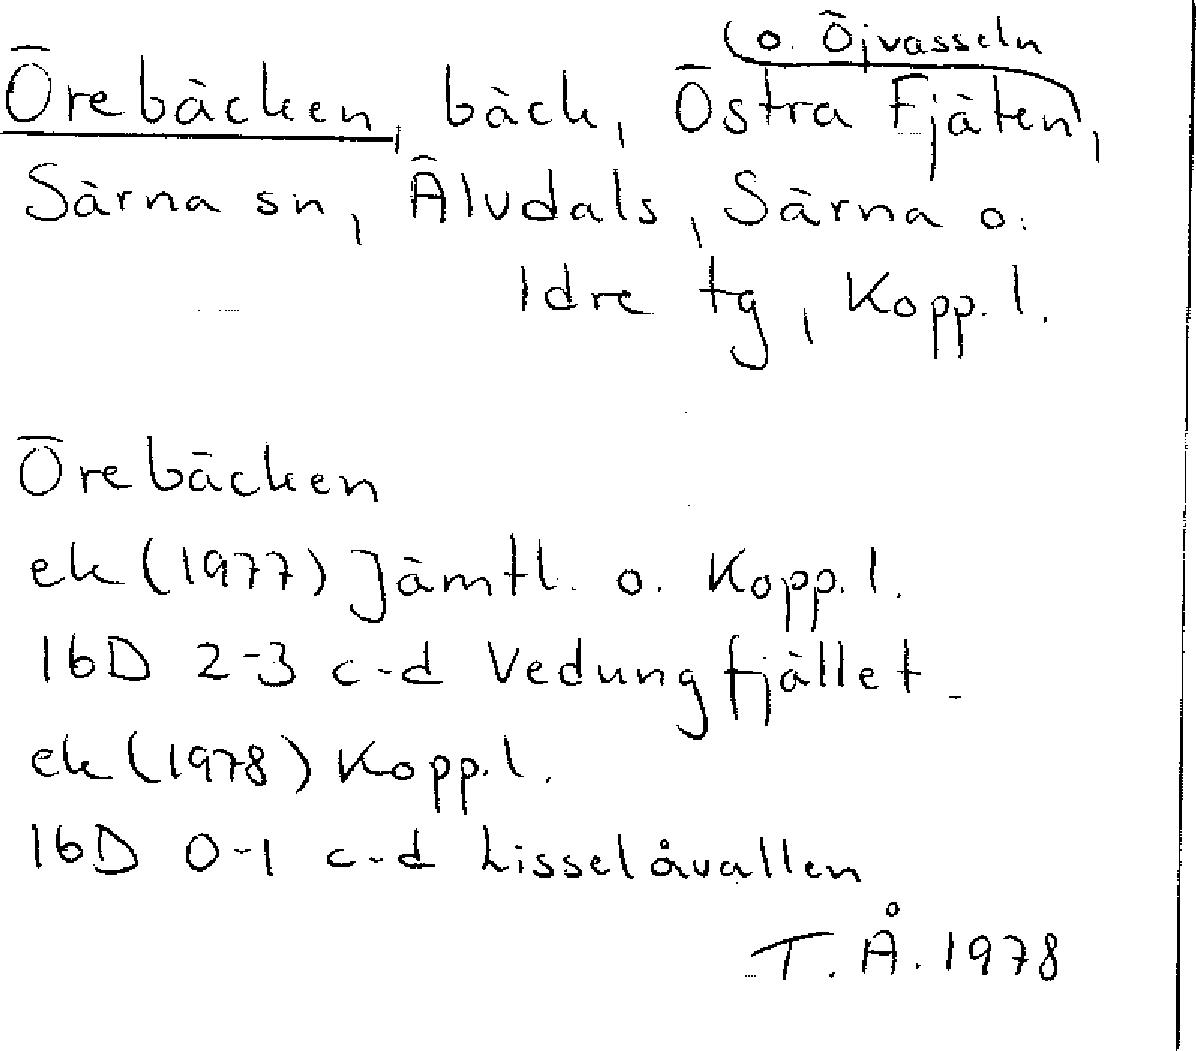 o. Öjvasseln
Örebäcken, bäck, Östra Fjäten,
Särna sn, Älvdals, Särna o.
Idre tg, Kopp. l.
Örebäcken
ek (1977) Jämtl. o. Kopp. l.
16D 2-3 c-d Vedungfjället
ek (1978) Kopp. l.
16D 0-1 c-d Lisselåvallen
T. Å. 1978